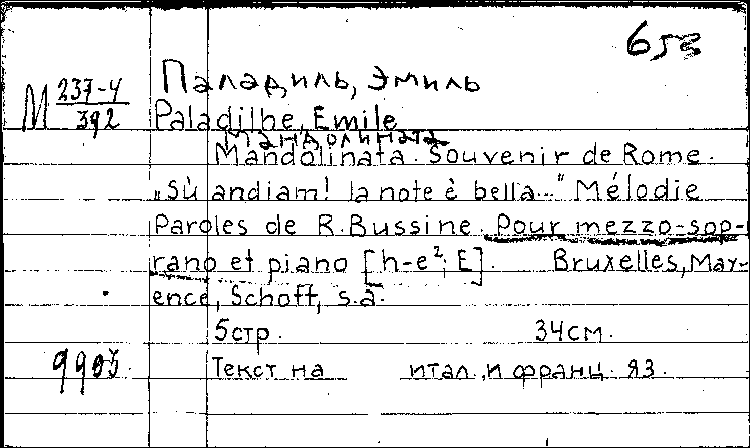 653
Паладиль, Эмиль
М 237-4/392
Paladilhe, Emile
Мандолината
Mandolinata. Souvenir de Rome.
„Sù andiam! la note è bella..." Mélodie
Paroles de R. Bussine. Pour mezzo-sop-
rano et piano [h-e²; E]. Bruxelles, May-
ence, Schott, s.a.
5 стр. 34 см.
9903. Текст на итал. и франц. яз.